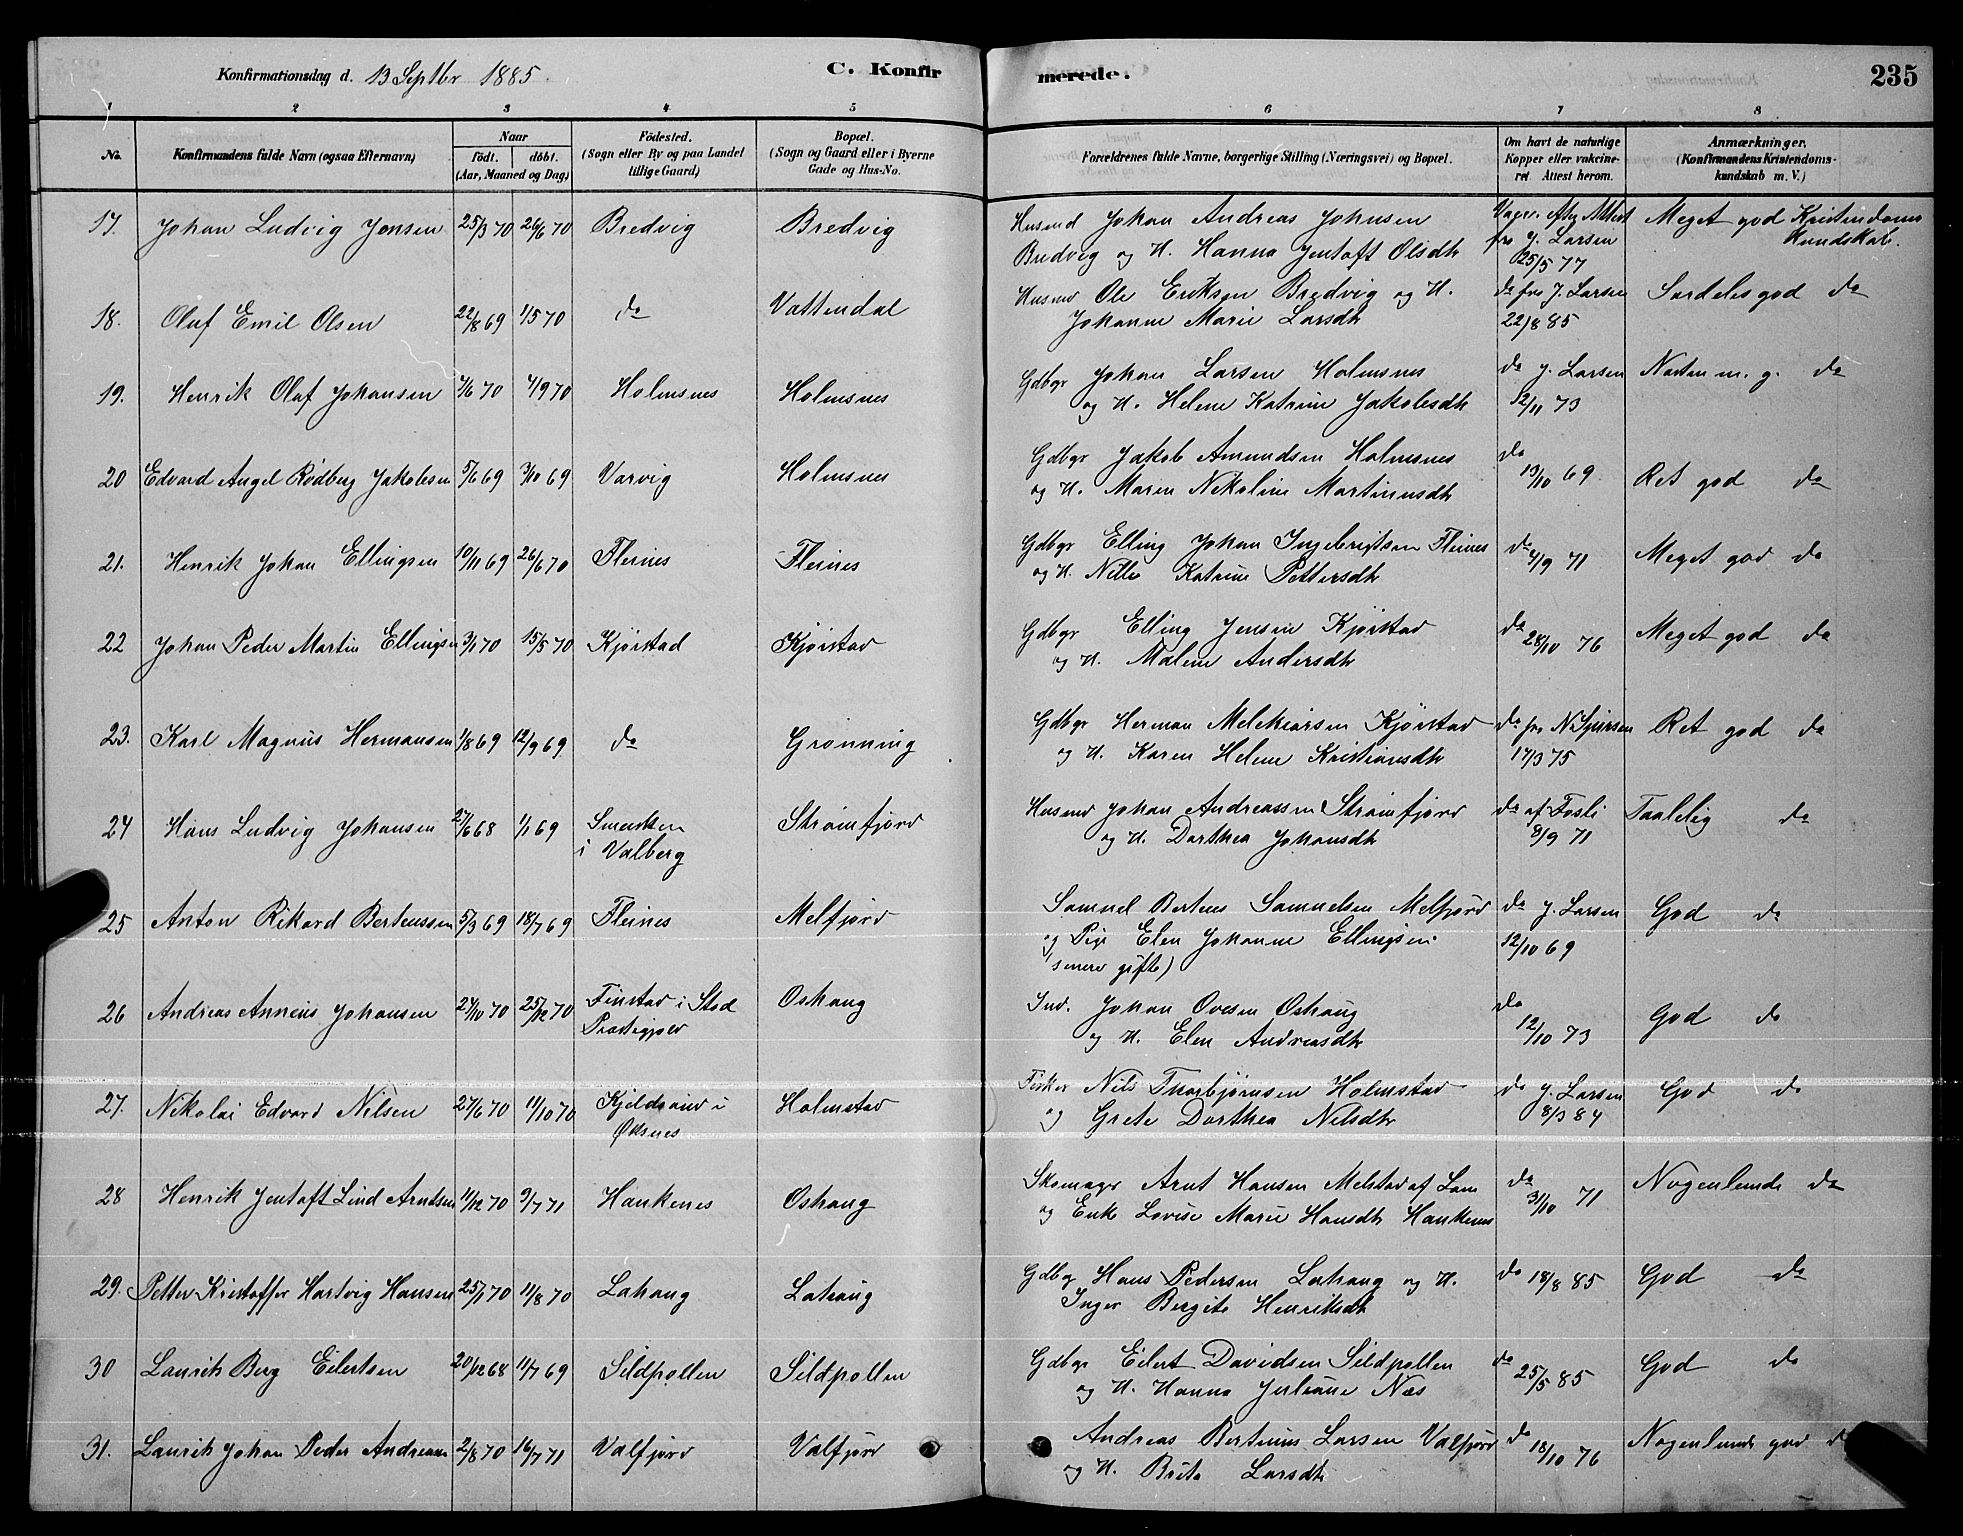 Konfirmationsdag d. 13 Septbr 1885. C. Konfirmerede. 235
1 2 3 4 5 6 7 8
No. Konfirmandens fulde Navn (ogsaa Efternavn) Naar født. døbt. (Aar, Maaned og Dag) Födested. (Sogn eller By og paa Landet tillige Gaard) Bopæl. (Sogn og Gaard eller i Byerne Gade og Hus-No. Forældrenes fulde Navne, borgerlige Stilling (Næringsvei) og Bopæl. Om havt de naturlige Kopper eller vakcineret Attest herom. Anmærkninger. (Konfirmandens Kristendomskundskab m. V.)
17. Johan Ludvig Jensen 25/3 70 26/6 70 Bredvig Bredvig Husmd Johan Andreas Johnsen Attest Meget god Kristendoms
Bredvig og H. Hanna Jentoft Olsdtr fra J. Larsen Kundskab.
25/5 77
18. Olaf Emil Olsen 22/8 69 1/5 70 do Vattendal Husmd Ole Eriksen Bredvig og H. do fra J. Larsen Særdeles god do
Johanne Marie Larsdtr 22/8 85
19. Henrik Olaf Johansen 7/6 70 4/9 70 Holmsnes Holmsnes Gdbgr Johan Larsen Holmsnes do J. Larsen Næsten m. g. do
og H. Helene Katrine Jakobsdtr 12/11 73
20 Edvard Angel Rødberg Jakobsen 5/6 69 3/10 69 Varvig Holmsnes Gdbgr Jakob Amundsen Holmsnes do
og H. Maren Nikoline Martinusdtr 13/10 69 Ret god do
21. Henrik Johan Ellingsen 10/11 69 26/6 70 Fleines Fleines Gdbgr Elling Johan Ingebrigtsen Fleines do 4/9 71 Meget god do
og H. Nille Katrine Pettersdtr
22 Johan Peder Martin Ellingsen 3/1 70 15/5 70 Kjørstad Kjørstad Gdbgr Elling Jensen Kjørstad do 28/10 76 Meget god do
og H. Malene Andersdtr
23. Karl Magnus Hermansen 1/8 69 12/9 69 do Grønning Gdbgr Herman Melkiorsen Kjørstad do fra N Sjursen Ret god do
og H. Karen Helene Kristiansdtr 17/3 75
24 Hans Ludvig Johansen 27/6 68 1/1 69 Smedsten Strømfjord Husmd Johan Andreassen Strømfjord do af Fosli Taalelig do
i Valberg og H. Dorthea Johansdtr 8/9 71
25 Anton Rikard Berteussen 5/3 69 18/7 69 Fleines Melfjord Samuel Berteus Samuelsen Melfjord do J. Larsen God do
og Pige Elen Johanne Ellingsen 12/10 69
(senere gifte)
26 Andreas Anneus Johansen 24/10 70 25/12 70 Finstad i Stod Oshaug Ind. Johan Ovesen Oshaug do 12/10 73 God do
Præstegjeld og H. Elen Andreasdtr
27. Nikolai Edvard Nilsen 27/6 70 11/10 70 Kjeldsand i Holmstad Fisker Nils Thorbjørnsen Holmstad do J. Larsen God do
Øksnes og Grete Dorthea Nilsdtr 8/3 84
28 Henrik Jentoft Lind Arntsen 11/12 70 9/7 71 Haukenes Oshaug Skomagr Arnt Hansen Melstad af Land do 31/10 71 Nogenlunde do
og Enke Lovise Marie Hansdtr Haukenes
29. Petter Kristoffer Hartvig Hansen 25/1 70 11/8 70 Lahaug Lahaug Gdbgr Hans Pedersen Lahaug og H. do 18/8 85 God do
Inger Bergite Henriksdtr
30 Laurik Berg Eilertsen 20/12 68 11/7 69 Sildpollen Sildpollen Gdbgr Eilert Davidsen Sildpollen do 25/5 85 God do
og H. Hanna Juliane Næs
31. Laurik Johan Peder Andreassen 2/8 70 16/7 71 Valfjord Valfjord Andreas Berteus Larsen Valfjord do 18/10 76 Nogenlunde god do
og H. Brita Larsdtr